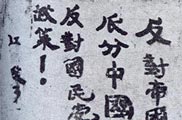 反對帝國
瓜分中國
反對國民党
政策！
江